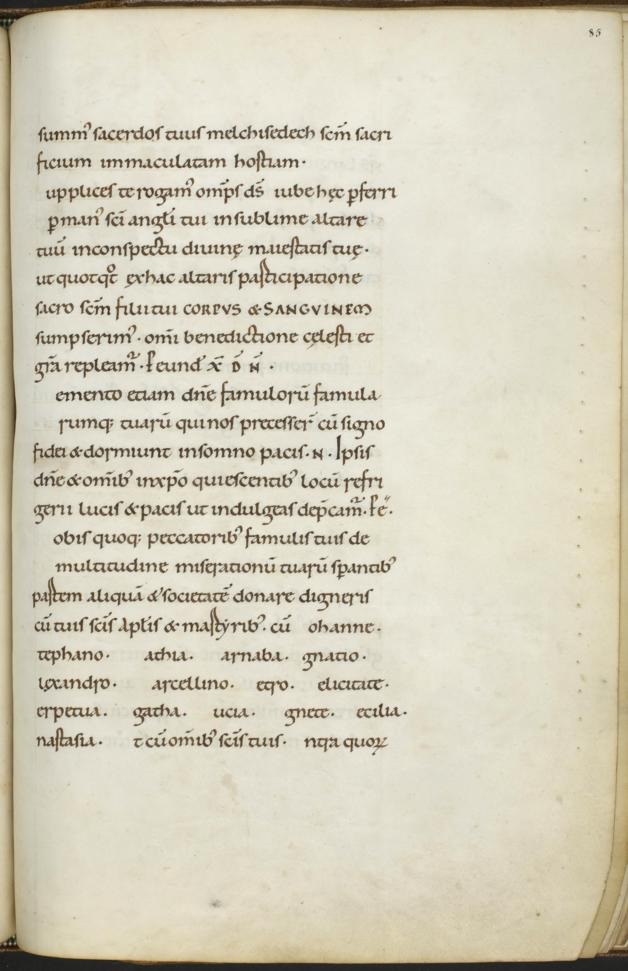 85
summ᷒ sacerdos tuus melchisedech scm̄ sacri
ficium immaculatam hostiam·
upplices te rogam᷒ omp̄s ds̄ iube hęc p̱ferri
p̱ man᷒ sc̄i angl̄i tui insublime altare
tuū inconspectu divinę maiestatis tuę·
ut quotq̊t exhac altaris participatione
sacro scm̄ filii tui CORPUS & SANGUINEM
sumpserim᷒· omī benedictione cęlesti et
gr̄a repleam᷒·
emento etiam dn̄e famulorū famula
rumq; tuarū qui nos precesser̄ cū signo
fidei & dormiunt insomno pacis·N· Ipsis
dn̄e & om̄ib᷒ inxp̄o quiescentib᷒ locū refri
gerii lucis & pacis ut indulgeas dep̄cam᷒·
obis quoq; peccatorib᷒ famulis tuis de
multitudine miserationū tuarū sp̱antib᷒
partem aliquā & societatē donare digneris
cū tuis sc̄is apl̄is & martyrib᷒· cū ohanne·
tephano· athia· arnaba· gnatio·
lexandro· arcellino· etro· elicitate·
erpetua· gatha· ucia· gnete· ecilia·
nastasia· t cū om̄ib᷒ sc̄is tuis· ntra quoꝝ